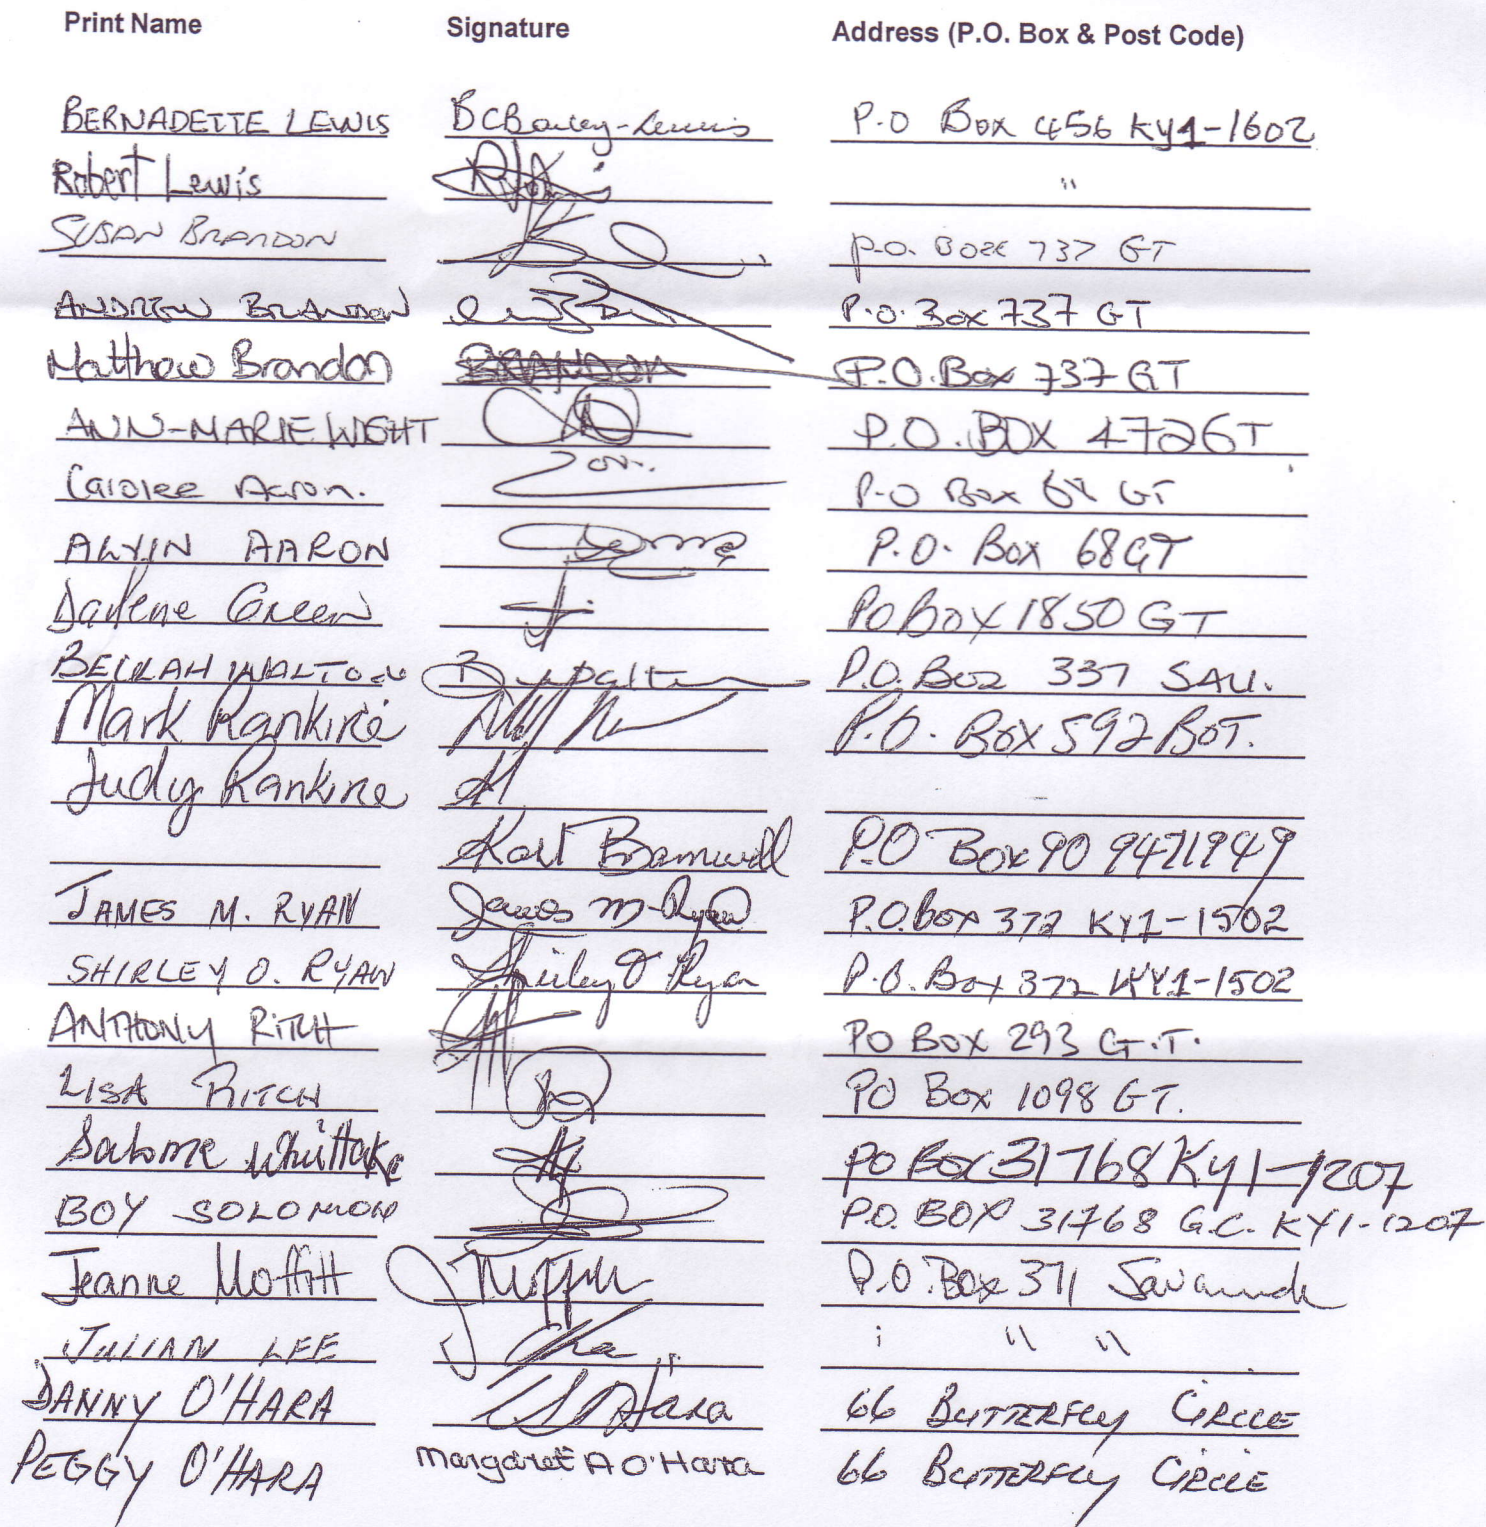 Print Name Signature Address (P.O. Box & Post Code)
BERNADETTE LEWIS BCBailey-Lewis P.O Box 456 KY1-1602
Robert Lewis "
SUSAN BRANDON P.O. Box 737 GT
ANDREW BRANDON P.O. Box 737 GT
Matthew Brandon BRANDON P.O. Box 737 GT
ANN-MARIE WIGHT P.O. BOX 472GT
Carolee Aaron. P.O Box 68 GT
ALVIN AARON P.O. Box 68GT
Darlene Green PO Box 1850 GT
BEULAH WALTON B Walton P.O. Box 337 SAV.
Mark Rankine P.O. Box 592 BOT.
Judy Rankine
Bramwell P.O Box 90 9471949
JAMES M. RYAN James M Ryan P.O. Box 372 KY1-1502
SHIRLEY O. RYAN Shirley O Ryan P.O. Box 372 KY1-1502
ANTHONY RITCH PO BOX 293 G.T.
LISA RITCH PO Box 1098 GT.
Salome Whittake PO Box 31768 KY1-1207
BOY SOLOMON P.O. BOX 31768 G.C. KY1-1207
Jeanne Moffitt JMoffitt P.O. Box 371 Savannah
JULIAN LEE " "
DANNY O'HARA O'Hara 66 BUTTERFLY CIRCLE
PEGGY O'HARA Margaret A O'Hara 66 BUTTERFLY CIRCLE